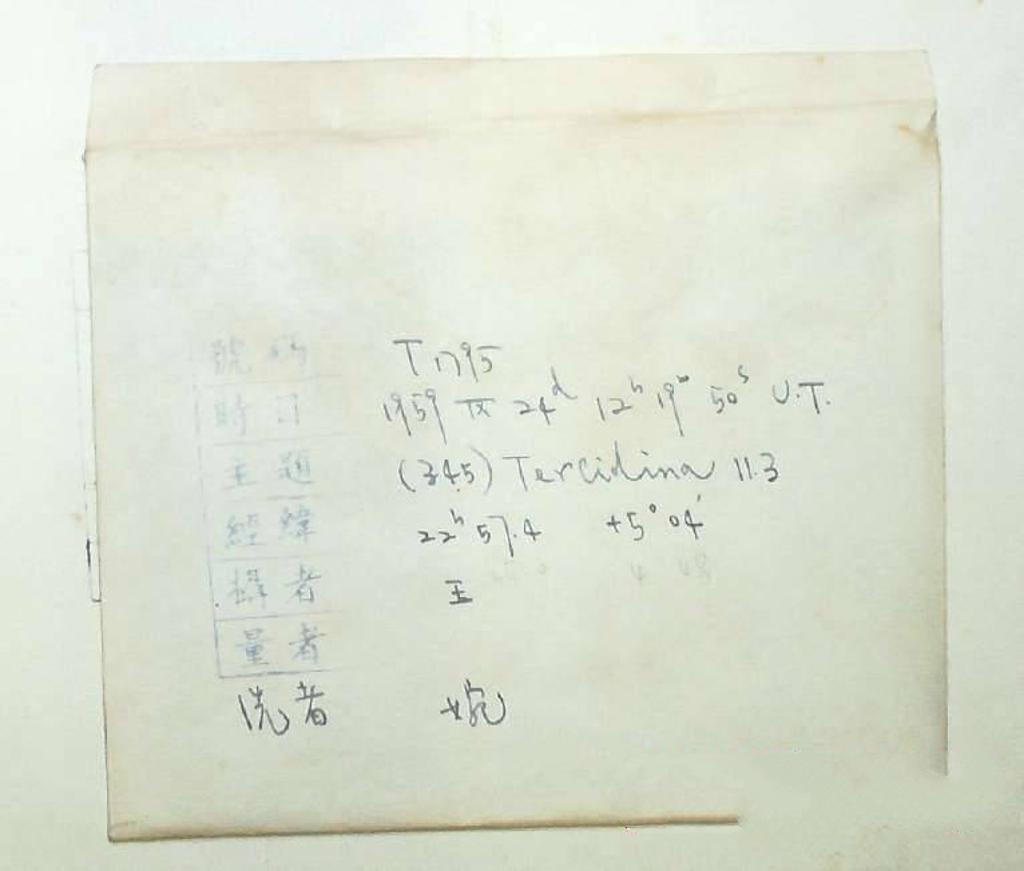 號碼 T1795
時日 1959 IX 24ᵈ 12ʰ 19ᵐ 50ˢ U.T.
主題 (345) Tercidina 11.3
經緯 22ʰ 57.4 +5° 04'
攝者 王
量者
洗者 婉